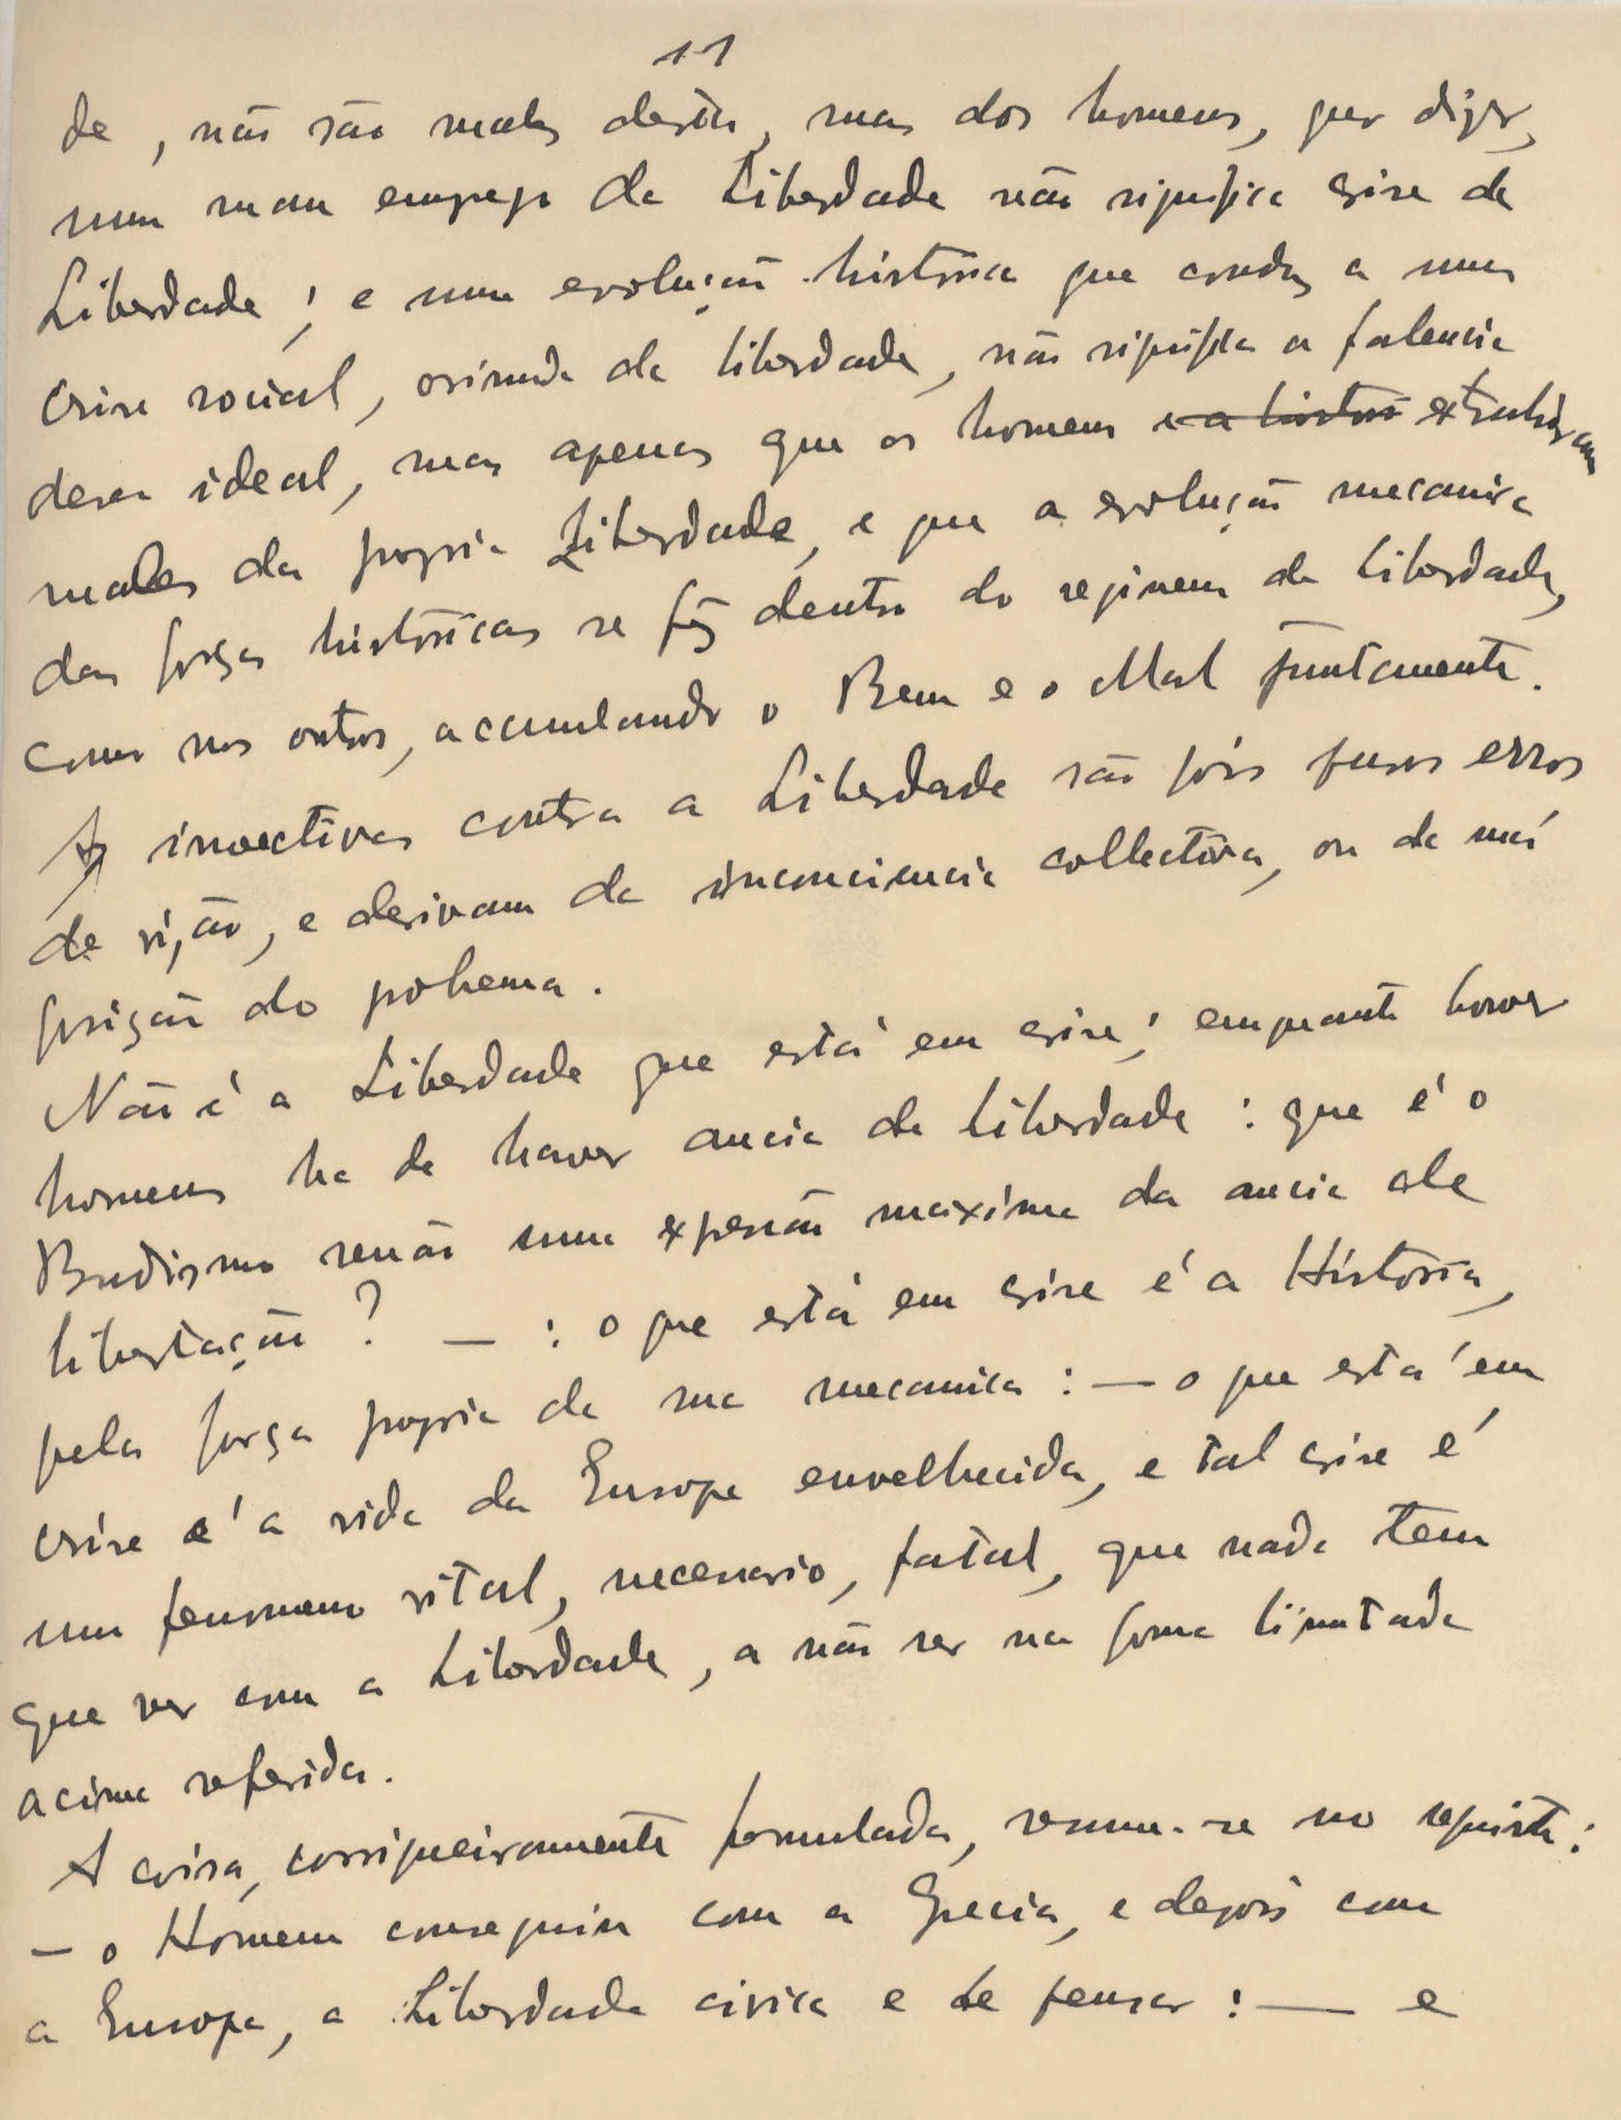 11
de, não são males desta, mas dos homens, quer dizer,
num mau emprego da Liberdade não significa crise de
Liberdade; e uma evolução historica que conduz a uma
crise social, oriunda da liberdade, não significa a falencia
desse ideal, mas apenas que os homens e a historia extrahiram
males da propria Liberdade, e que a evolução mecanica
das forças históricas se fez dentro do regimem da Liberdade,
como nos outros, acumulando o Bem e o Mal juntamente.
As invectivas contra a Liberdade são pois puros erros
de visão, e derivam da inconciencia collectiva, ou da má
posição do problema.
Não é a Liberdade que está em crise; emquanto houver
homens ha de haver ancia de liberdade: que é o
Budismo senão uma expressão maxima da ancia de
libertação? — : o que está em crise é a História,
pela força propria da sua mecanica: — o que está em
crise é a vida da Europa envelhecida, e tal crise é
um fenomeno vital, necessario, fatal, que nada tem
que ver com a Liberdade, a não ser na forma limitada
acima referida.
A coisa, corriqueiramente formulada, resume-se no seguinte:
— o Homem conseguiu com a Grecia, e depois com
a Europa, a Liberdade civica e de pensar: — e